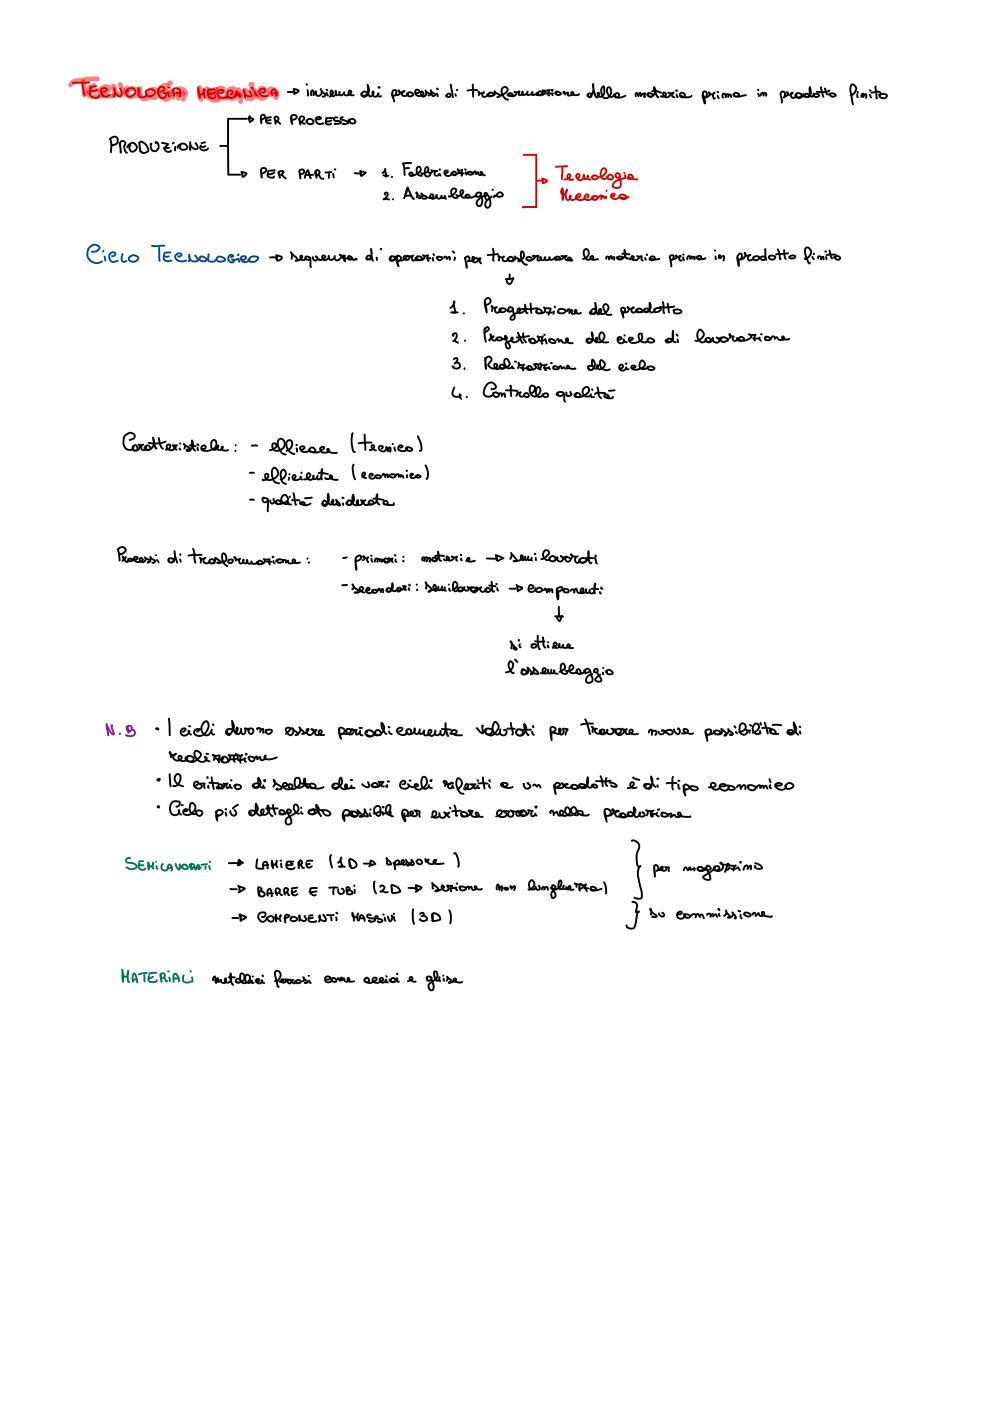 TECNOLOGIA MECCANICA → insieme dei processi di trasformazione della materia prima in prodotto finito
PER PROCESSO
PRODUZIONE
PER PARTI → 1. Fabbricazione
2. Assemblaggio
Tecnologia
Meccanica
CICLO TECNOLOGICO → sequenza di operazioni per trasformare la materia prima in prodotto finito
↓
1. Progettazione del prodotto
2. Progettazione del ciclo di lavorazione
3. Realizzazione del ciclo
4. Controllo qualità
Caratteristiche: - efficace (tecnico)
- efficiente (economico)
- qualità desiderata
Processi di trasformazione: - primari: materie → semilavorati
- secondari: semilavorati → componenti
↓
si ottiene
l'assemblaggio
N.B • I cicli devono essere periodicamente valutati per trovare nuove possibilità di
realizzazione
• Il criterio di scelta dei vari cicli riferiti a un prodotto è di tipo economico
• Ciclo più dettagliato possibile per evitare errori nella produzione
SEMILAVORATI → LAMIERE (1D → spessore)
→ BARRE E TUBI (2D → sezione non lunghezza)
per magazzino
→ COMPONENTI MASSIVI (3D)
su commissione
MATERIALI metallici ferrosi come acciai e ghise